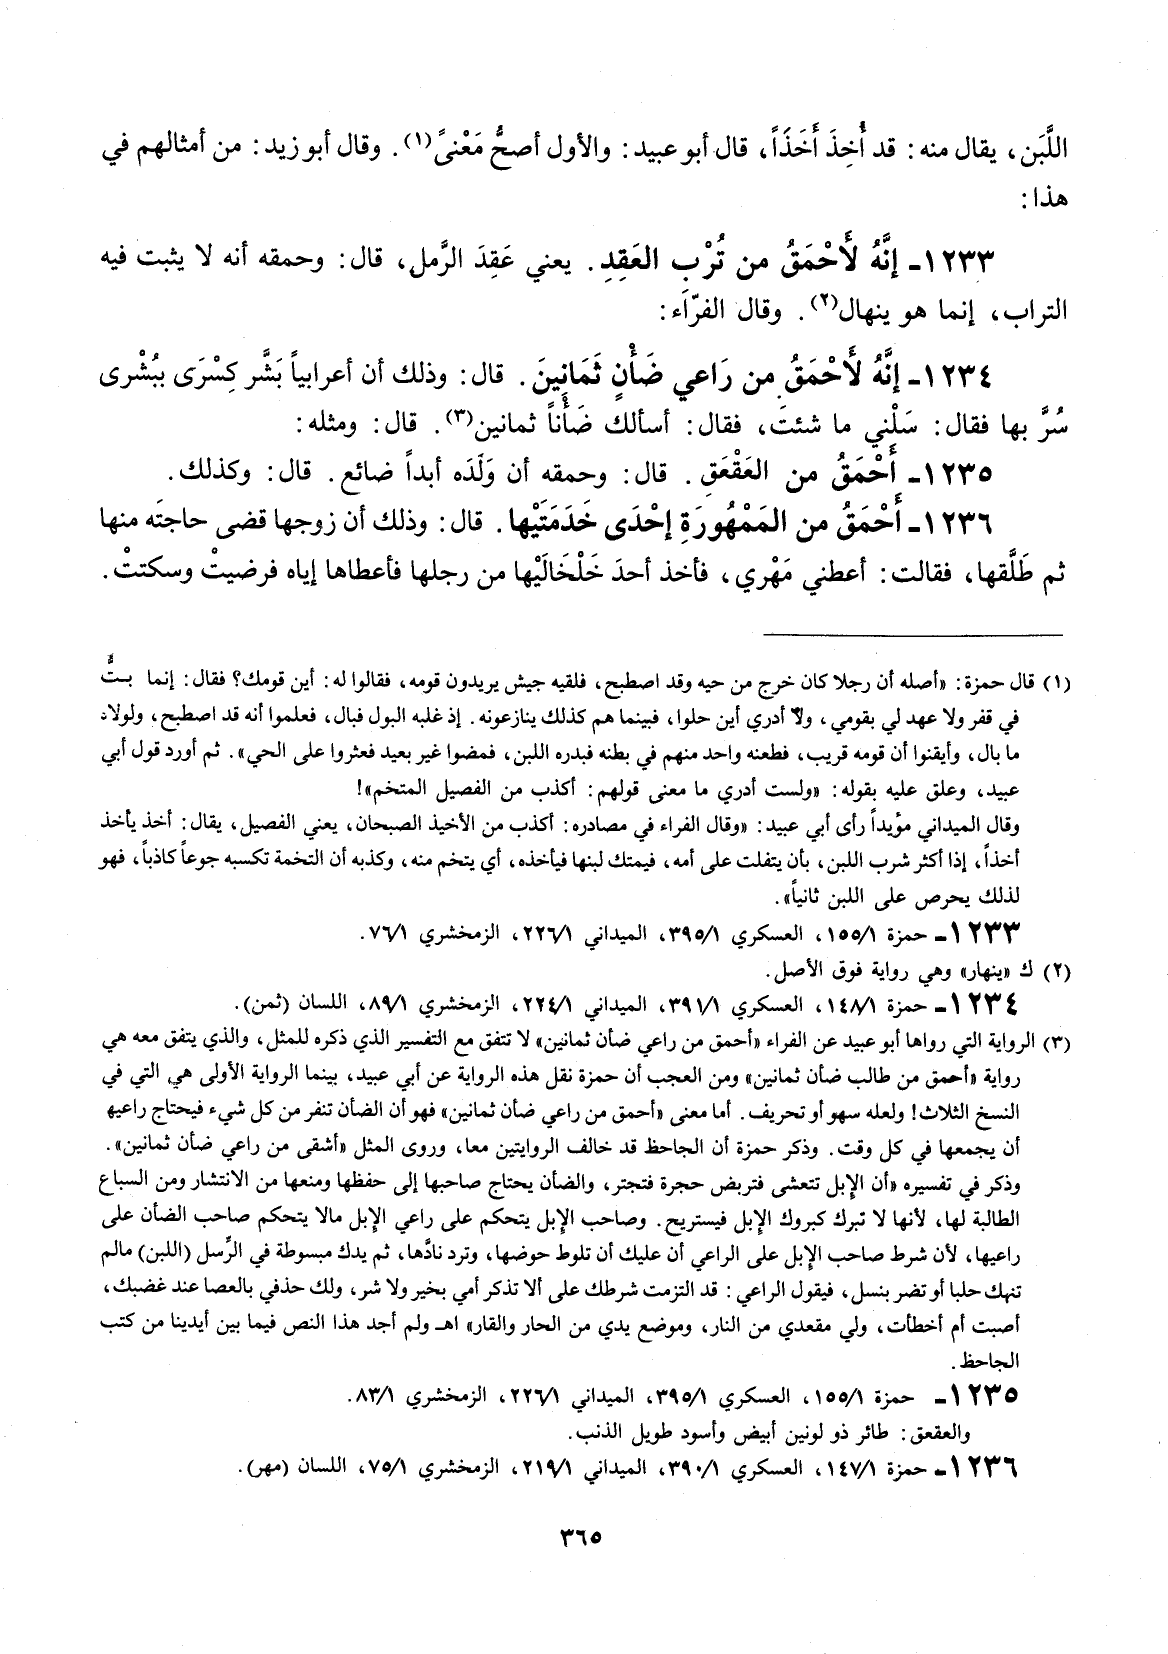 اللَّبَن، يقال منه: قد أُخِذَ أَخَذَاً، قال أبو عبيد: والأول أصحُّ مَعْنىً(١). وقال أبو زيد: من أمثالهم في
هذا:
١٢٣٣ـ إنَّهُ لَأَحْمَقُ من تُرْبِ العَقِدِ. يعني عَقِدَ الرَّمل، قال: وحمقه أنه لا يثبت فيه
التراب، إنما هو ينهال(٢). وقال الفرّاء:
١٢٣٤ـ إنَّهُ لَأَحْمَقُ من رَاعي ضَأْنٍ ثَمَانِينَ. قال: وذلك أن أعرابياً بَشَّر كِسْرَى ببُشْرى
سُرَّ بها فقال: سَلْني ما شئتَ، فقال: أسألك ضَأْناً ثمانين(٣). قال: ومثله:
١٢٣٥ـ أَحْمَقُ من العَقْعَقِ. قال: وحمقه أن وَلَدَه أبداً ضائع. قال: وكذلك.
١٢٣٦ـ أَحْمَقُ من المَمْهُورَةِ إحْدَى خَدَمَتَيْها. قال: وذلك أن زوجها قضى حاجتَه منها
ثم طَلَّقها، فقالت: أعطني مَهْري، فأخذ أحدَ خَلْخَالَيْها من رجلها فأعطاها إياه فرضيتْ وسكتتْ.
(١) قال حمزة: «أصله أن رجلا كان خرج من حيه وقد اصطبح، فلقيه جيش يريدون قومه، فقالوا له: أين قومك؟ فقال: إنما بتُّ
في قفر ولا عهد لي بقومي، ولا أدري أين حلوا، فبينما هم كذلك ينازعونه. إذ غلبه البول فبال، فعلموا أنه قد اصطبح، ولولاد
ما بال، وأيقنوا أن قومه قريب، فطعنه واحد منهم في بطنه فبدره اللبن، فمضوا غير بعيد فعثروا على الحي». ثم أورد قول أبي
عبيد، وعلق عليه بقوله: «ولست أدري ما معنى قولهم: أكذب من الفصيل المتخم»!
وقال الميداني مؤيداً رأى أبي عبيد: «وقال الفراء في مصادره: أكذب من الأخيذ الصبحان، يعني الفصيل، يقال: أخذ يأخذ
أخذاً، إذا أكثر شرب اللبن، بأن يتفلت على أمه، فيمتك لبنها فيأخذه، أي يتخم منه، وكذبه أن التخمة تكسبه جوعاً كاذباً، فهو
لذلك يحرص على اللبن ثانياً».
١٢٣٣ـ حمزة ١٥٥/١، العسكري ٣٩٥/١، الميداني ٢٢٦/١، الزمخشري ٧٦/١.
(٢) ك «ينهار» وهي رواية فوق الأصل.
١٢٣٤ـ حمزة ١٤٨/١، العسكري ٣٩١/١، الميداني ٢٢٤/١، الزمخشري ٨٩/١، اللسان (ثمن).
(٣) الرواية التي رواها أبو عبيد عن الفراء «أحمق من راعي ضأن ثمانين» لا تتفق مع التفسير الذي ذكره للمثل، والذي يتفق معه هي
رواية «أحمق من طالب ضأن ثمانين» ومن العجب أن حمزة نقل هذه الرواية عن أبي عبيد، بينما الرواية الأولى هي التي في
النسخ الثلاث! ولعله سهو أو تحريف. أما معنى «أحمق من راعي ضأن ثمانين» فهو أن الضأن تنفر من كل شيء فيحتاج راعيها
أن يجمعها في كل وقت. وذكر حمزة أن الجاحظ قد خالف الروايتين معا، وروى المثل «أشقى من راعي ضأن ثمانين».
وذكر في تفسيره «أن الإبل تتعشى فتربض حجرة فتجتر، والضأن يحتاج صاحبها إلى حفظها ومنعها من الانتشار ومن السباع
الطالبة لها، لأنها لا تبرك كبروك الإبل فيستريح. وصاحب الإبل يتحكم على راعي الإبل مالا يتحكم صاحب الضأن على
راعيها، لأن شرط صاحب الإبل على الراعي أن عليك أن تلوط حوضها، وترد نادَّها، ثم يدك مبسوطة في الرِّسل (اللبن) مالم
تنهك حلبا أو تضر بنسل، فيقول الراعي: قد التزمت شرطك على ألا تذكر أمي بخير ولا شر، ولك حذفي بالعصا عند غضبك،
أصبت أم أخطأت، ولي مقعدي من النار، وموضع يدي من الحار والقار» اهـ ولم أجد هذا النص فيما بين أيدينا من كتب
الجاحظ.
١٢٣٥ـ حمزة ١٥٥/١، العسكري ٣٩٥/١، الميداني ٢٢٦/١، الزمخشري ٨٣/١.
والعقعق: طائر ذو لونين أبيض وأسود طويل الذنب.
١٢٣٦ـ حمزة ١٤٧/١، العسكري ٣٩٠/١، الميداني ٢١٩/١، الزمخشري ٧٥/١، اللسان (مهر).
٣٦٥